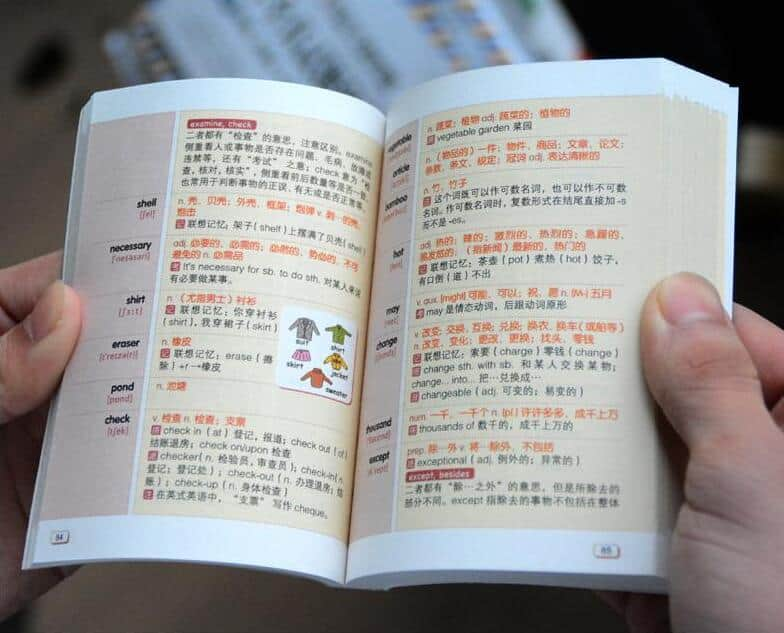 examine, check
二者都有“检查”的意思，注意区别。examine
侧重看人或事物是否存在问题、毛病、故障或
违禁等，还有“考试”之意；check 意为“检
查，核对，核实”，侧重看前后数量等是否一致，
也常用于判断事物的正误、有无或是否正常等。
shell
[ʃel]
n. 壳、贝壳；外壳、框架；炮弹 v. 剥…的壳、
炮击
记 联想记忆：架子（shelf）上摆满了贝壳（shell）
necessary
[ˈnesəsəri]
adj. 必要的、必需的；必然的、势必的、不可
避免的 n. 必需品
考 It's necessary for sb. to do sth. 对某人来说
有必要做某事。
shirt
[ʃɜːt]
n. （尤指男士）衬衫
记 联想记忆：你穿衬衫
（shirt），我穿裙子（skirt）
suit
shirt
skirt
jacket
sweater
eraser
[ɪˈreɪzə(r)]
n. 橡皮
记 联想记忆：erase（擦
除）+r→橡皮
pond
[pɒnd]
n. 池塘
check
[tʃek]
v. 检查 n. 检查；支票
check in（at）登记，报道；check out（of）
结账退房；check on/upon 检查
checker（n. 检验员，审查员）；check-in（n.
登记；登记处）；check-out（n. 办理退房；结
账）；check-up（n. 身体检查）
注 在英式英语中，“支票”写作 cheque。
84
vegetable
n. 蔬菜；植物 adj. 蔬菜的；植物的
vegetable garden 菜园
article
n. （物品的）一件；物件，商品；文章、论文；
条款，条文，规定；冠词 adj. 表达清晰的
bamboo
n. 竹，竹子
这个词既可以作可数名词，也可以作不可数
名词。作可数名词时，复数形式在结尾直接加 -s
而不是 -es。
hot
[hɒt]
adj. 热的；辣的；激烈的、热烈的；急躁的、
易发怒的；（指新闻）最新的、热门的
记 联想记忆：茶壶（pot）煮热（hot）饺子，
有口倒（道）不出
may
[meɪ]
v. aux. [might] 可能，可以；祝，愿 n. (M-) 五月
考 may 是情态动词，后跟动词原形
change
[tʃeɪndʒ]
v. 改变；交换，互换；兑换；换衣、换车（或船等）
n. 改变，变化；更改，更换；找头、零钱
记 联想记忆：索要（charge）零钱（change）
change sth. with sb. 和某人交换某物；
change... into... 把…兑换成…
changeable（adj. 可变的；易变的）
thousand
num. 一千，一千个 n. [pl.] 许许多多、成千上万
thousands of 数千的，成千上万的
except
[ɪkˈsept]
prep. 除…外 v. 将…除外，不包括
exceptional（adj. 例外的；异常的）
except, besides
二者都有“除…之外”的意思，但是所除去的
部分不同。except 指除去的事物不包括在整体
85